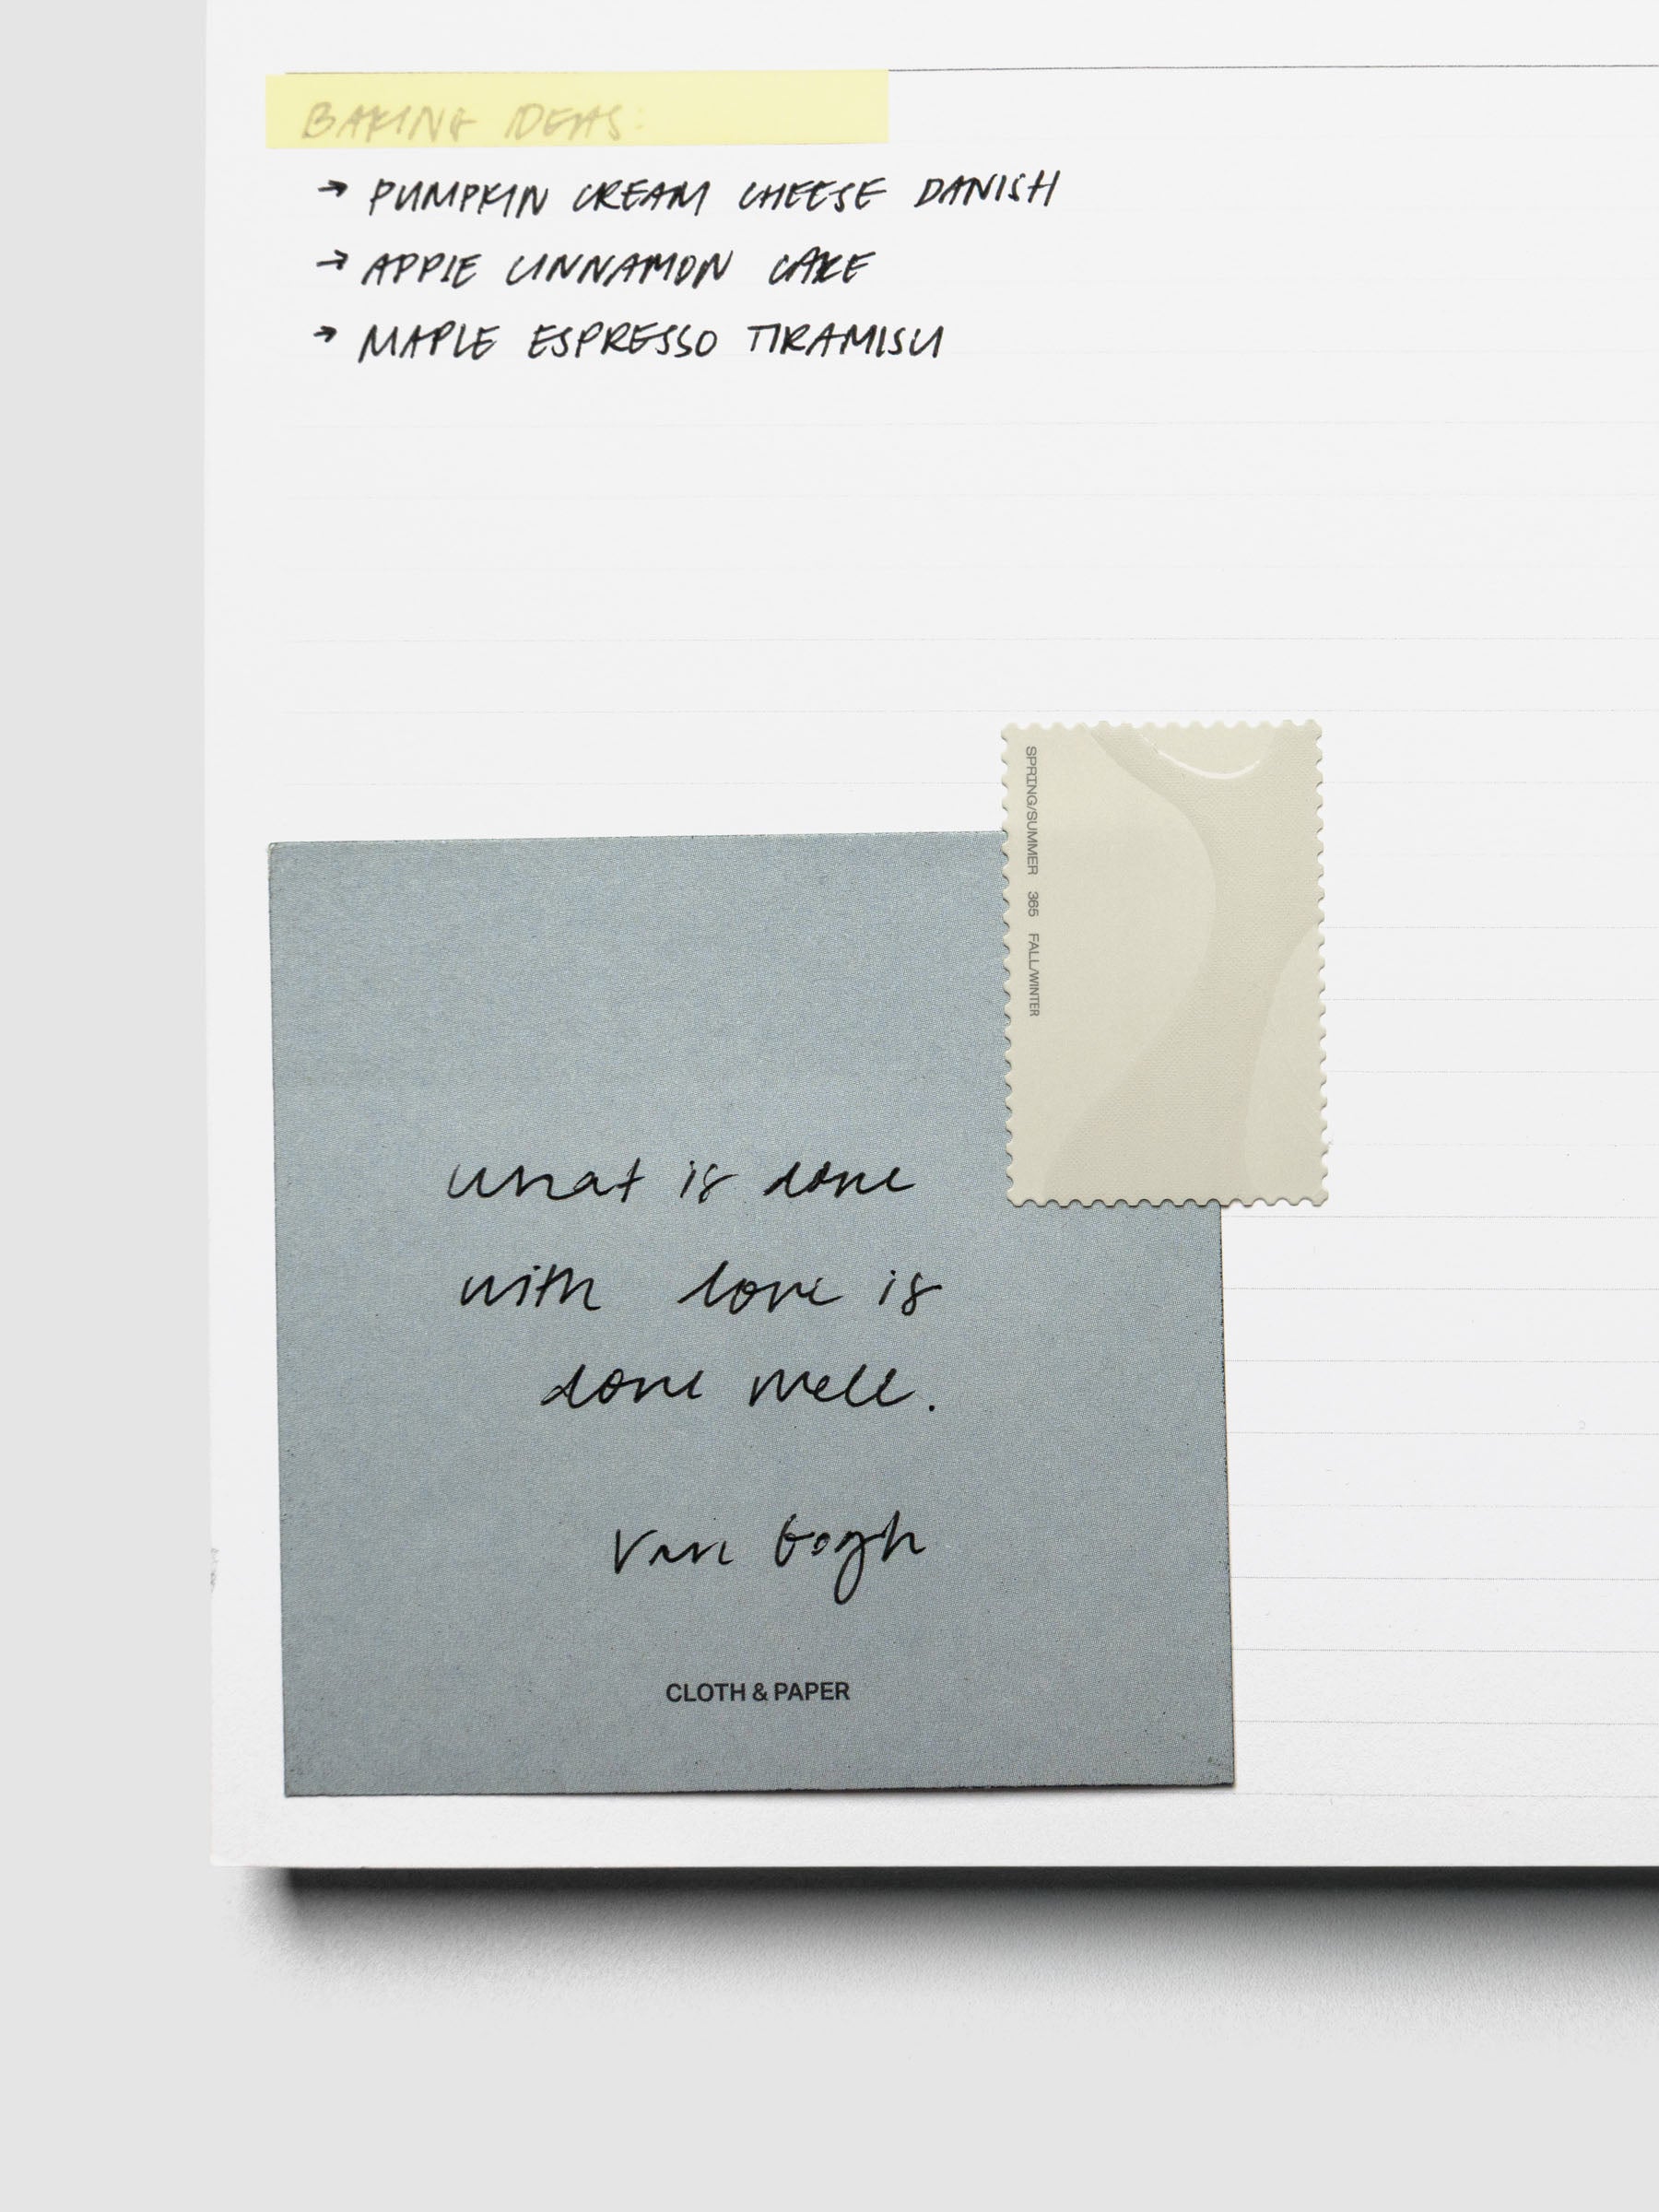 BAKING IDEAS:
→ PUMPKIN CREAM CHEESE DANISH
→ APPLE CINNAMON CAKE
→ MAPLE ESPRESSO TIRAMISU
SPRING/SUMMER 365 FALL/WINTER
what is done
with love is
done well.
Van Gogh
CLOTH & PAPER